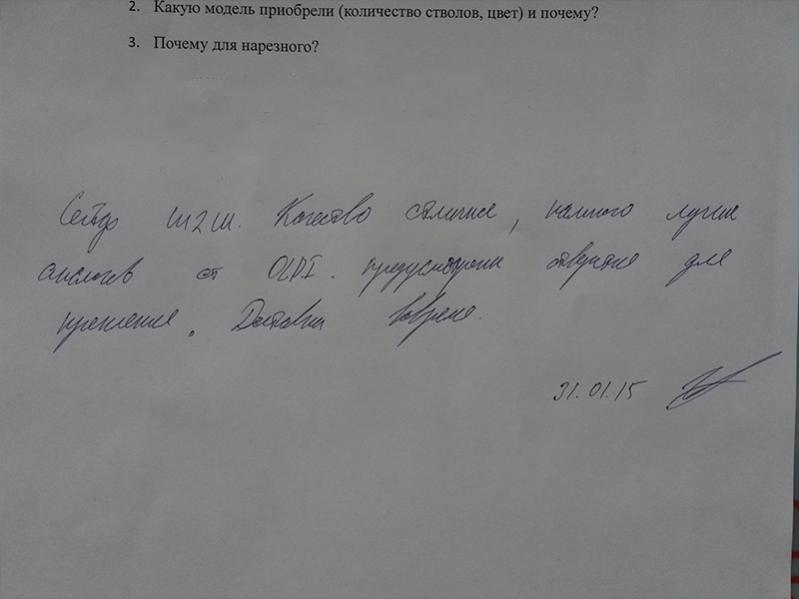 2. Какую модель приобрели (количество стволов, цвет) и почему?
3. Почему для нарезного?
Сейф Ш2Ш. Качество отличное, намного лучше
аналогов от OLDI. предусмотрены отверстия для
крепления. Доставка вовремя.
31.01.15